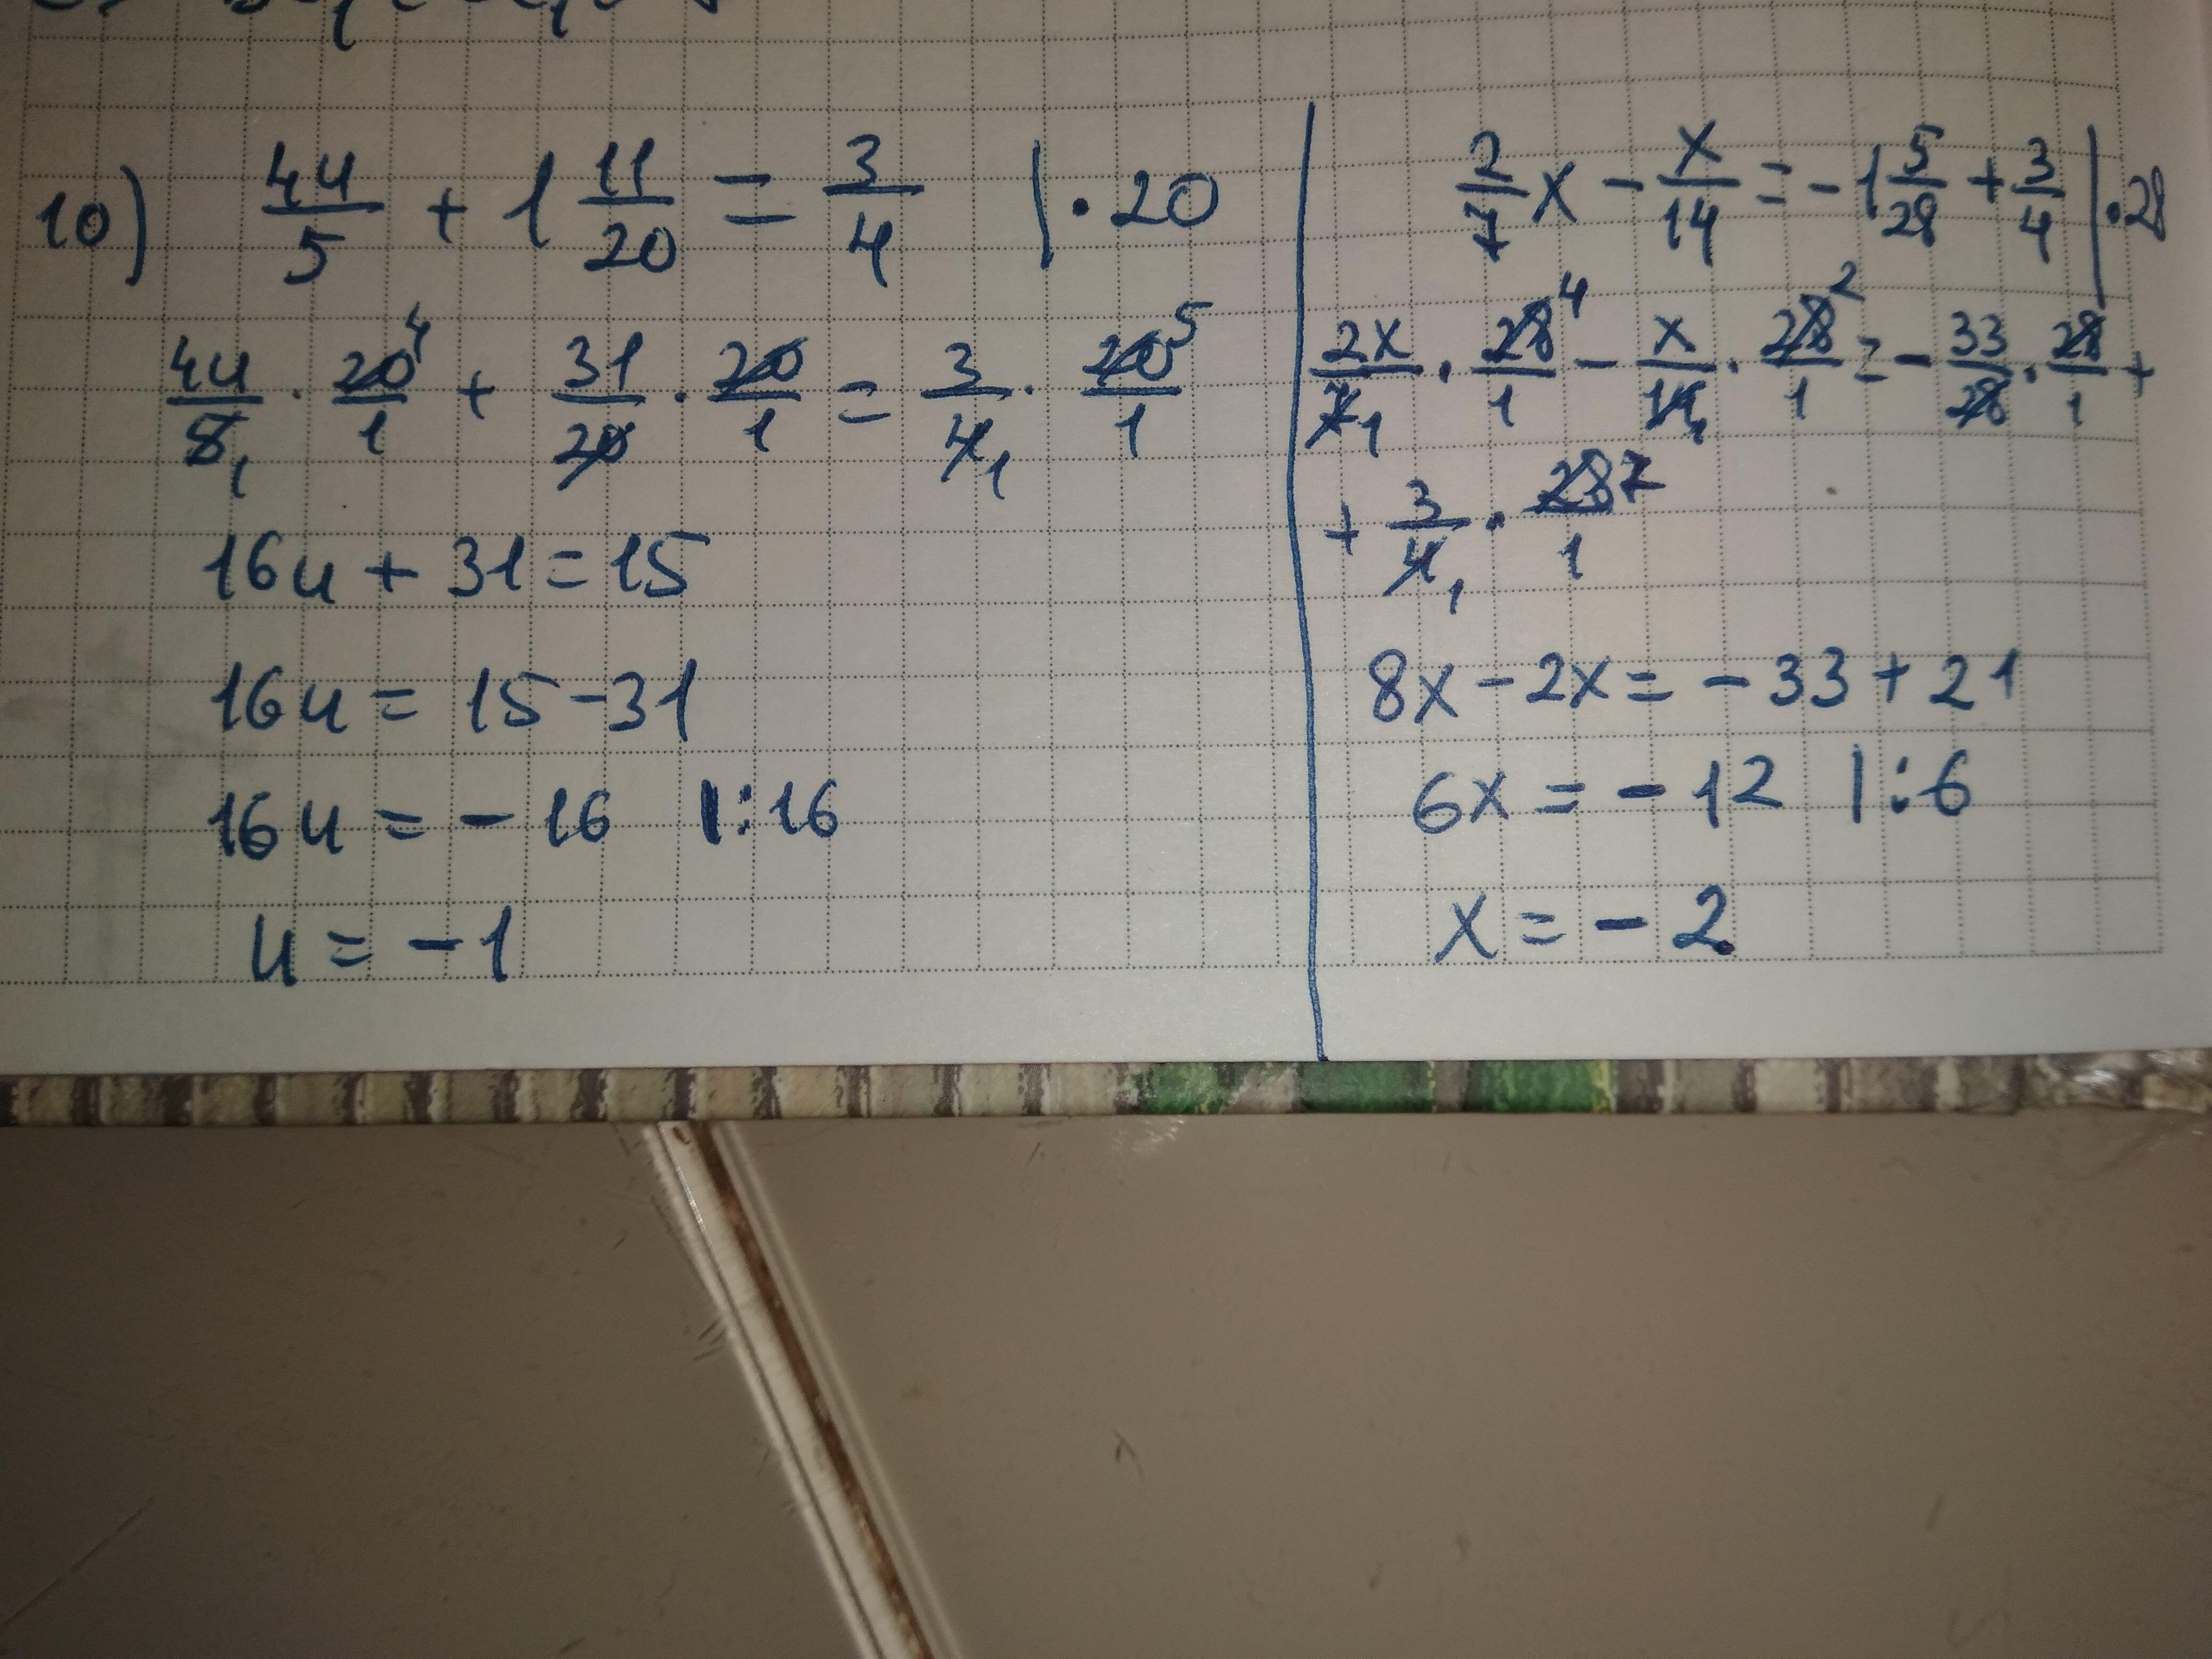 10) 4u/5 + 1 11/20 = 3/4 | · 20
4u/5 1 · 20 4/1 + 31/20 · 20/1 = 3/4 1 · 20 5/1
16u + 31 = 15
16u = 15 - 31
16u = - 16 | : 16
u = - 1
2/7 x - x/14 = - 1 5/28 + 3/4 | · 28
2x/7 1 · 28 4/1 - x/14 1 · 28 2/1 = - 33/28 · 28/1 +
+ 3/4 1 · 28 7/1
8x - 2x = - 33 + 21
6x = - 12 | : 6
x = - 2